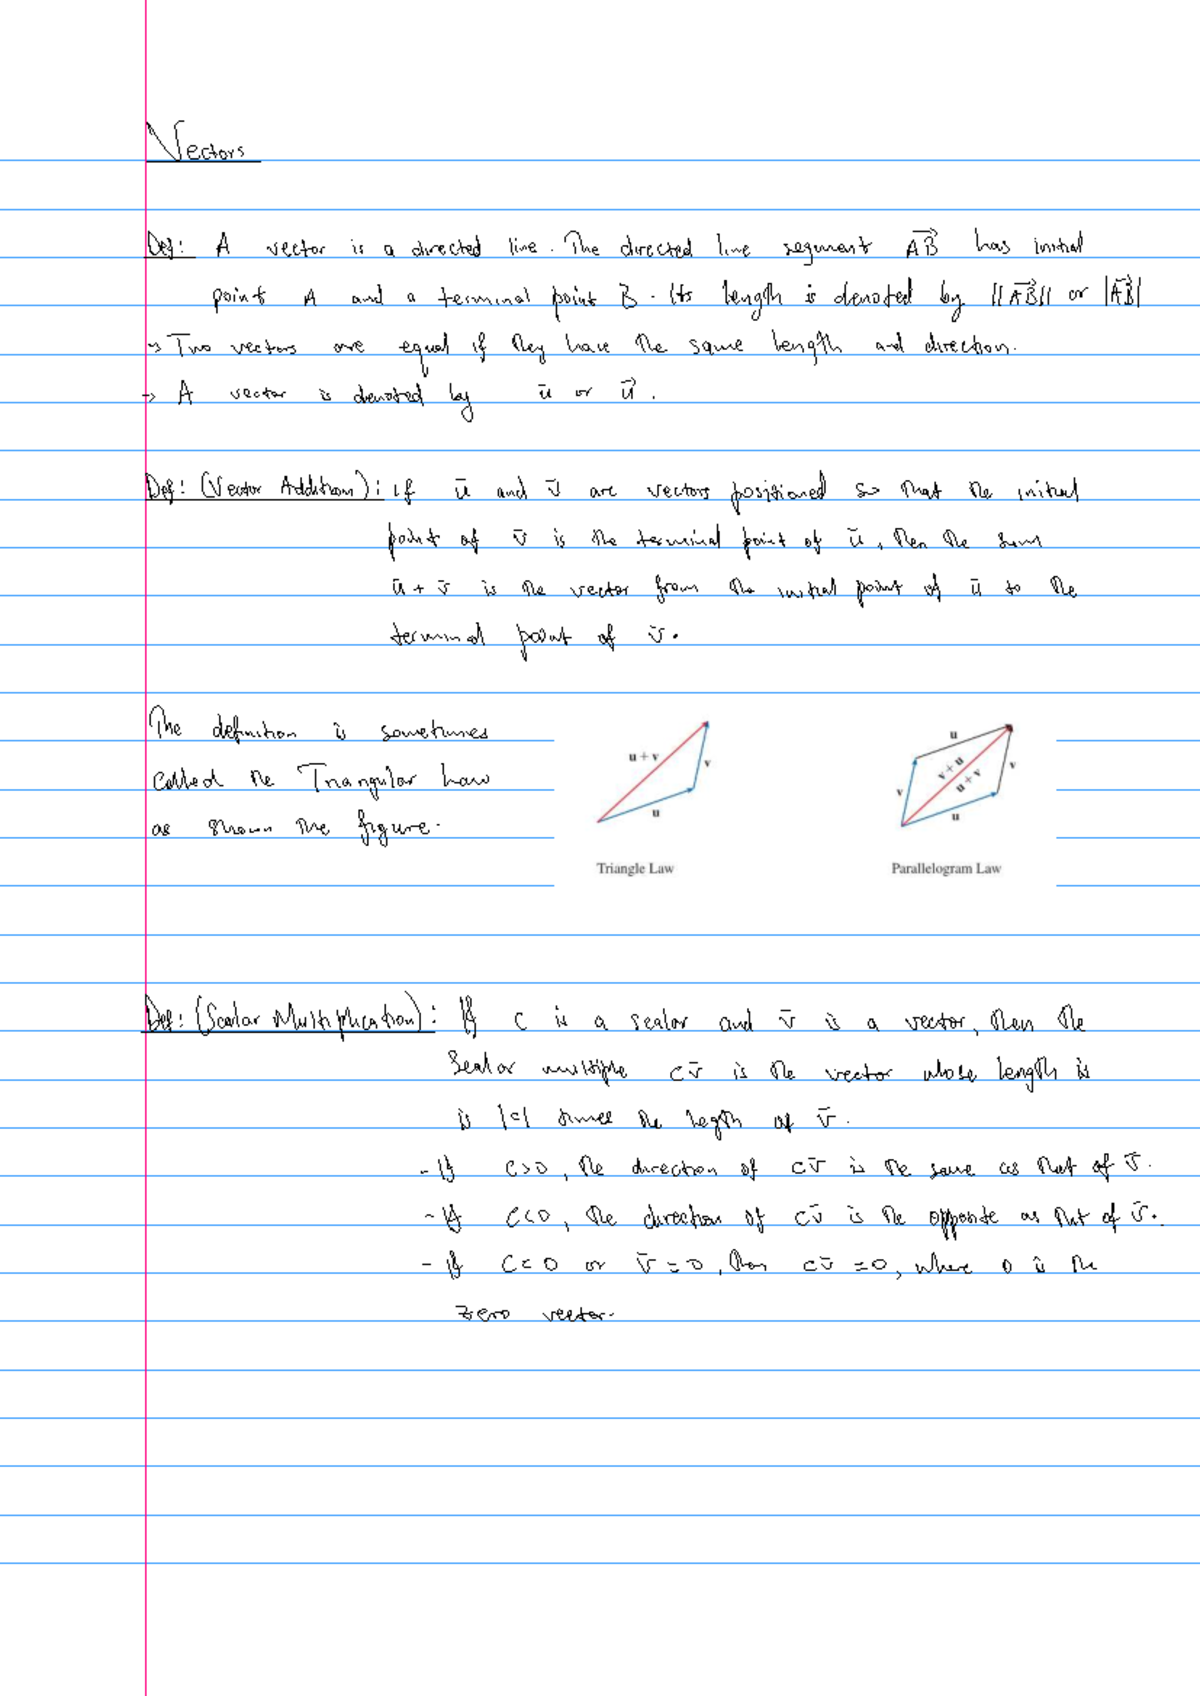 Vectors
Def: A vector is a directed line. The directed line segment A⃗B⃗ has initial
point A and a terminal point B. Its length is denoted by ||A⃗B⃗|| or |A⃗B⃗|
→ Two vectors are equal if they have the same length and direction.
→ A vector is denoted by ū or u⃗.
Def: (Vector Addition): If ū and v̄ are vectors positioned so that the initial
point of v̄ is the terminal point of ū, then the sum
ū + v̄ is the vector from the initial point of ū to the
terminal point of v̄.
The definition is sometimes
called the Triangular Law
as shown the figure.
u + v
v
u
Triangle Law
u
v + u
u + v
v
v
u
Parallelogram Law
Def: (Scalar Multiplication): If c is a scalar and v̄ is a vector, then the
Scalar multiple cv̄ is the vector whose length is
is |c| times the legth of v̄.
- If c>0, the direction of cv̄ is the same as that of v̄.
- If c<0, the direction of cv̄ is the opposite as that of v̄.
- If c=0 or v̄=0, then cv̄=0, where 0 is the
zero vector.